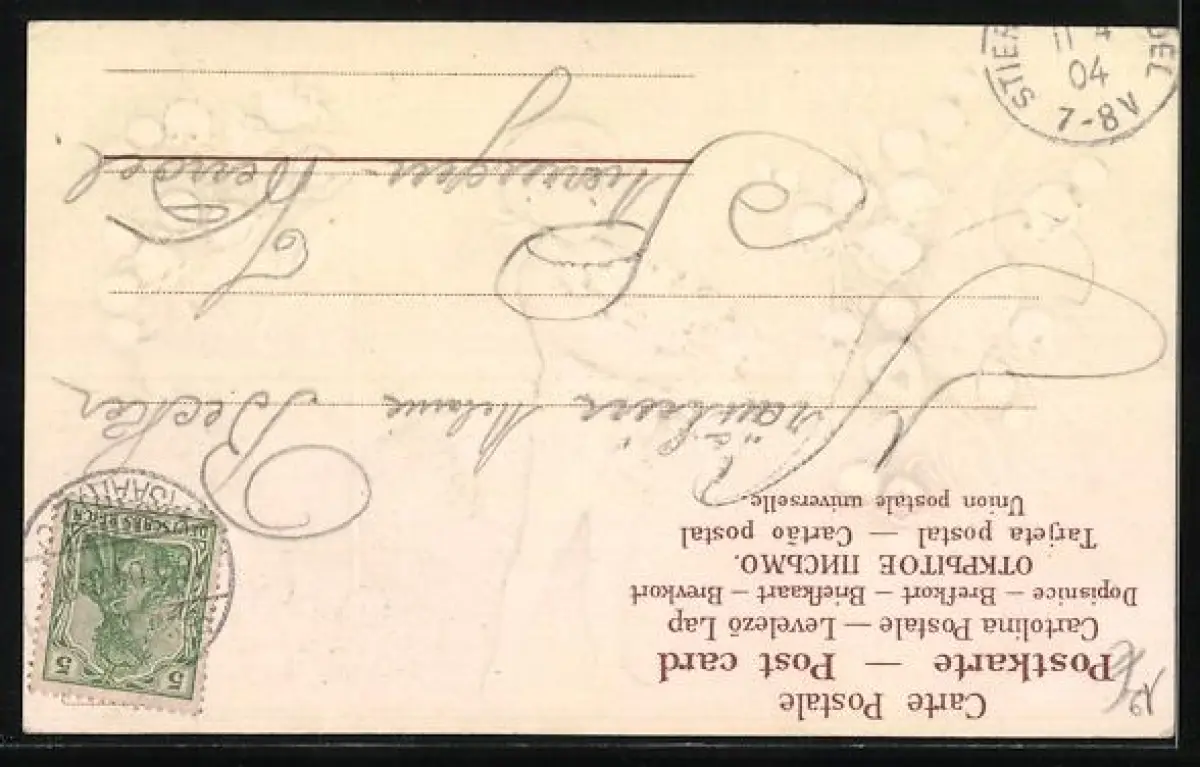 Carte Postale
Postkarte — Post card
Cartolina Postale — Levelező Lap
Dopisnice – Brefkort – Briefkaart – Brevkort
ОТКРЫТОЕ ПИСЬМО.
Tarjeta postal — Cartão postal
Union postale universelle.
DEUTSCHES REICH
5 5
Fräulein Melanie Becker
St. Wendel
04
7-8V